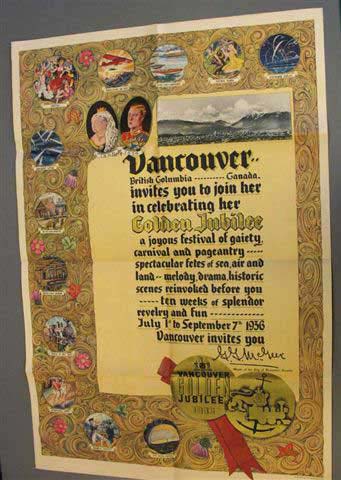 Vancouver..
British Columbia ---------- Canada.
invites you to join her
in celebrating her
Golden Jubilee
a joyous festival of gaiety,
carnival and pageantry -----
spectacular fetes of sea, air and
land -- melody, drama, historic
scenes reinvoked before you
----- ten weeks of splendor
revelry and fun -----
July 1st to September 7th 1936
Vancouver invites you
VANCOUVER
GOLDEN
JUBILEE